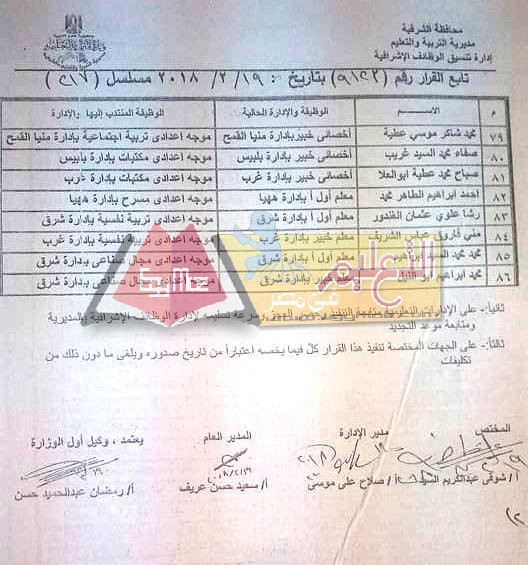 محافظة الشرقية
مديرية التربية والتعليم
إدارة تنسيق الوظائف الإشرافية
تابع القرار رقم (٩١٤٢) بتاريخ : ١٩ / ٢ / ٢٠١٨ مسلسل (٢١٧)
م الاســـم الوظيفة والإدارة الحالية الوظيفة المنتدب إليها والإدارة
٧٩ محمد شاكر موسي عطية أخصائى خبير بإدارة منيا القمح موجه اعدادى تربية اجتماعية بإدارة منيا القمح
٨٠ صفاء محمد السيد غريب أخصائى خبير بإدارة بلبيس موجه اعدادى مكتبات بإدارة بلبيس
٨١ صباح محمد عطية ابوالعلا أخصائى خبير بإدارة غرب موجه اعدادى مكتبات بإدارة غرب
٨٢ احمد ابراهيم الطاهر محمد معلم أول أ بإدارة ههيا موجه اعدادى مسرح بإدارة ههيا
٨٣ رشا علوي عثمان الغندور معلم أول أ بإدارة شرق موجه اعدادى تربية نفسية بإدارة شرق
٨٤ مني فاروق عباس الشريف معلم خبير بإدارة غرب موجه اعدادى تربية نفسية بإدارة غرب
٨٥ محمد محمد السيد ابراهيم معلم أول أ بإدارة شرق موجه اعدادى مجال صناعى بإدارة شرق
٨٦ محمد ابراهيم ابو الليل خبير بإدارة شرق موجه اعدادى مجال صناعى بإدارة شرق
التعليم في مصر
ثانياً:- على الإدارات التعليمية متابعة التنفيذ وسرعة تسليمه لإدارة الوظائف الإشرافية بالمديرية
ومتابعة موعد التجديد
ثالثاً:- على الجهات المختصة تنفيذ هذا القرار كلٌ فيما يخصه اعتباراً من تاريخ صدوره ويلغى ما دون ذلك من
تكليفات
المختص مدير الإدارة المدير العام يعتمد ، وكيل أول الوزارة
أ/ شوقى عبدالكريم السيد أ / صلاح على موسى أ/ سعيد حسن عريف أ/ رمضان عبدالحميد حسن